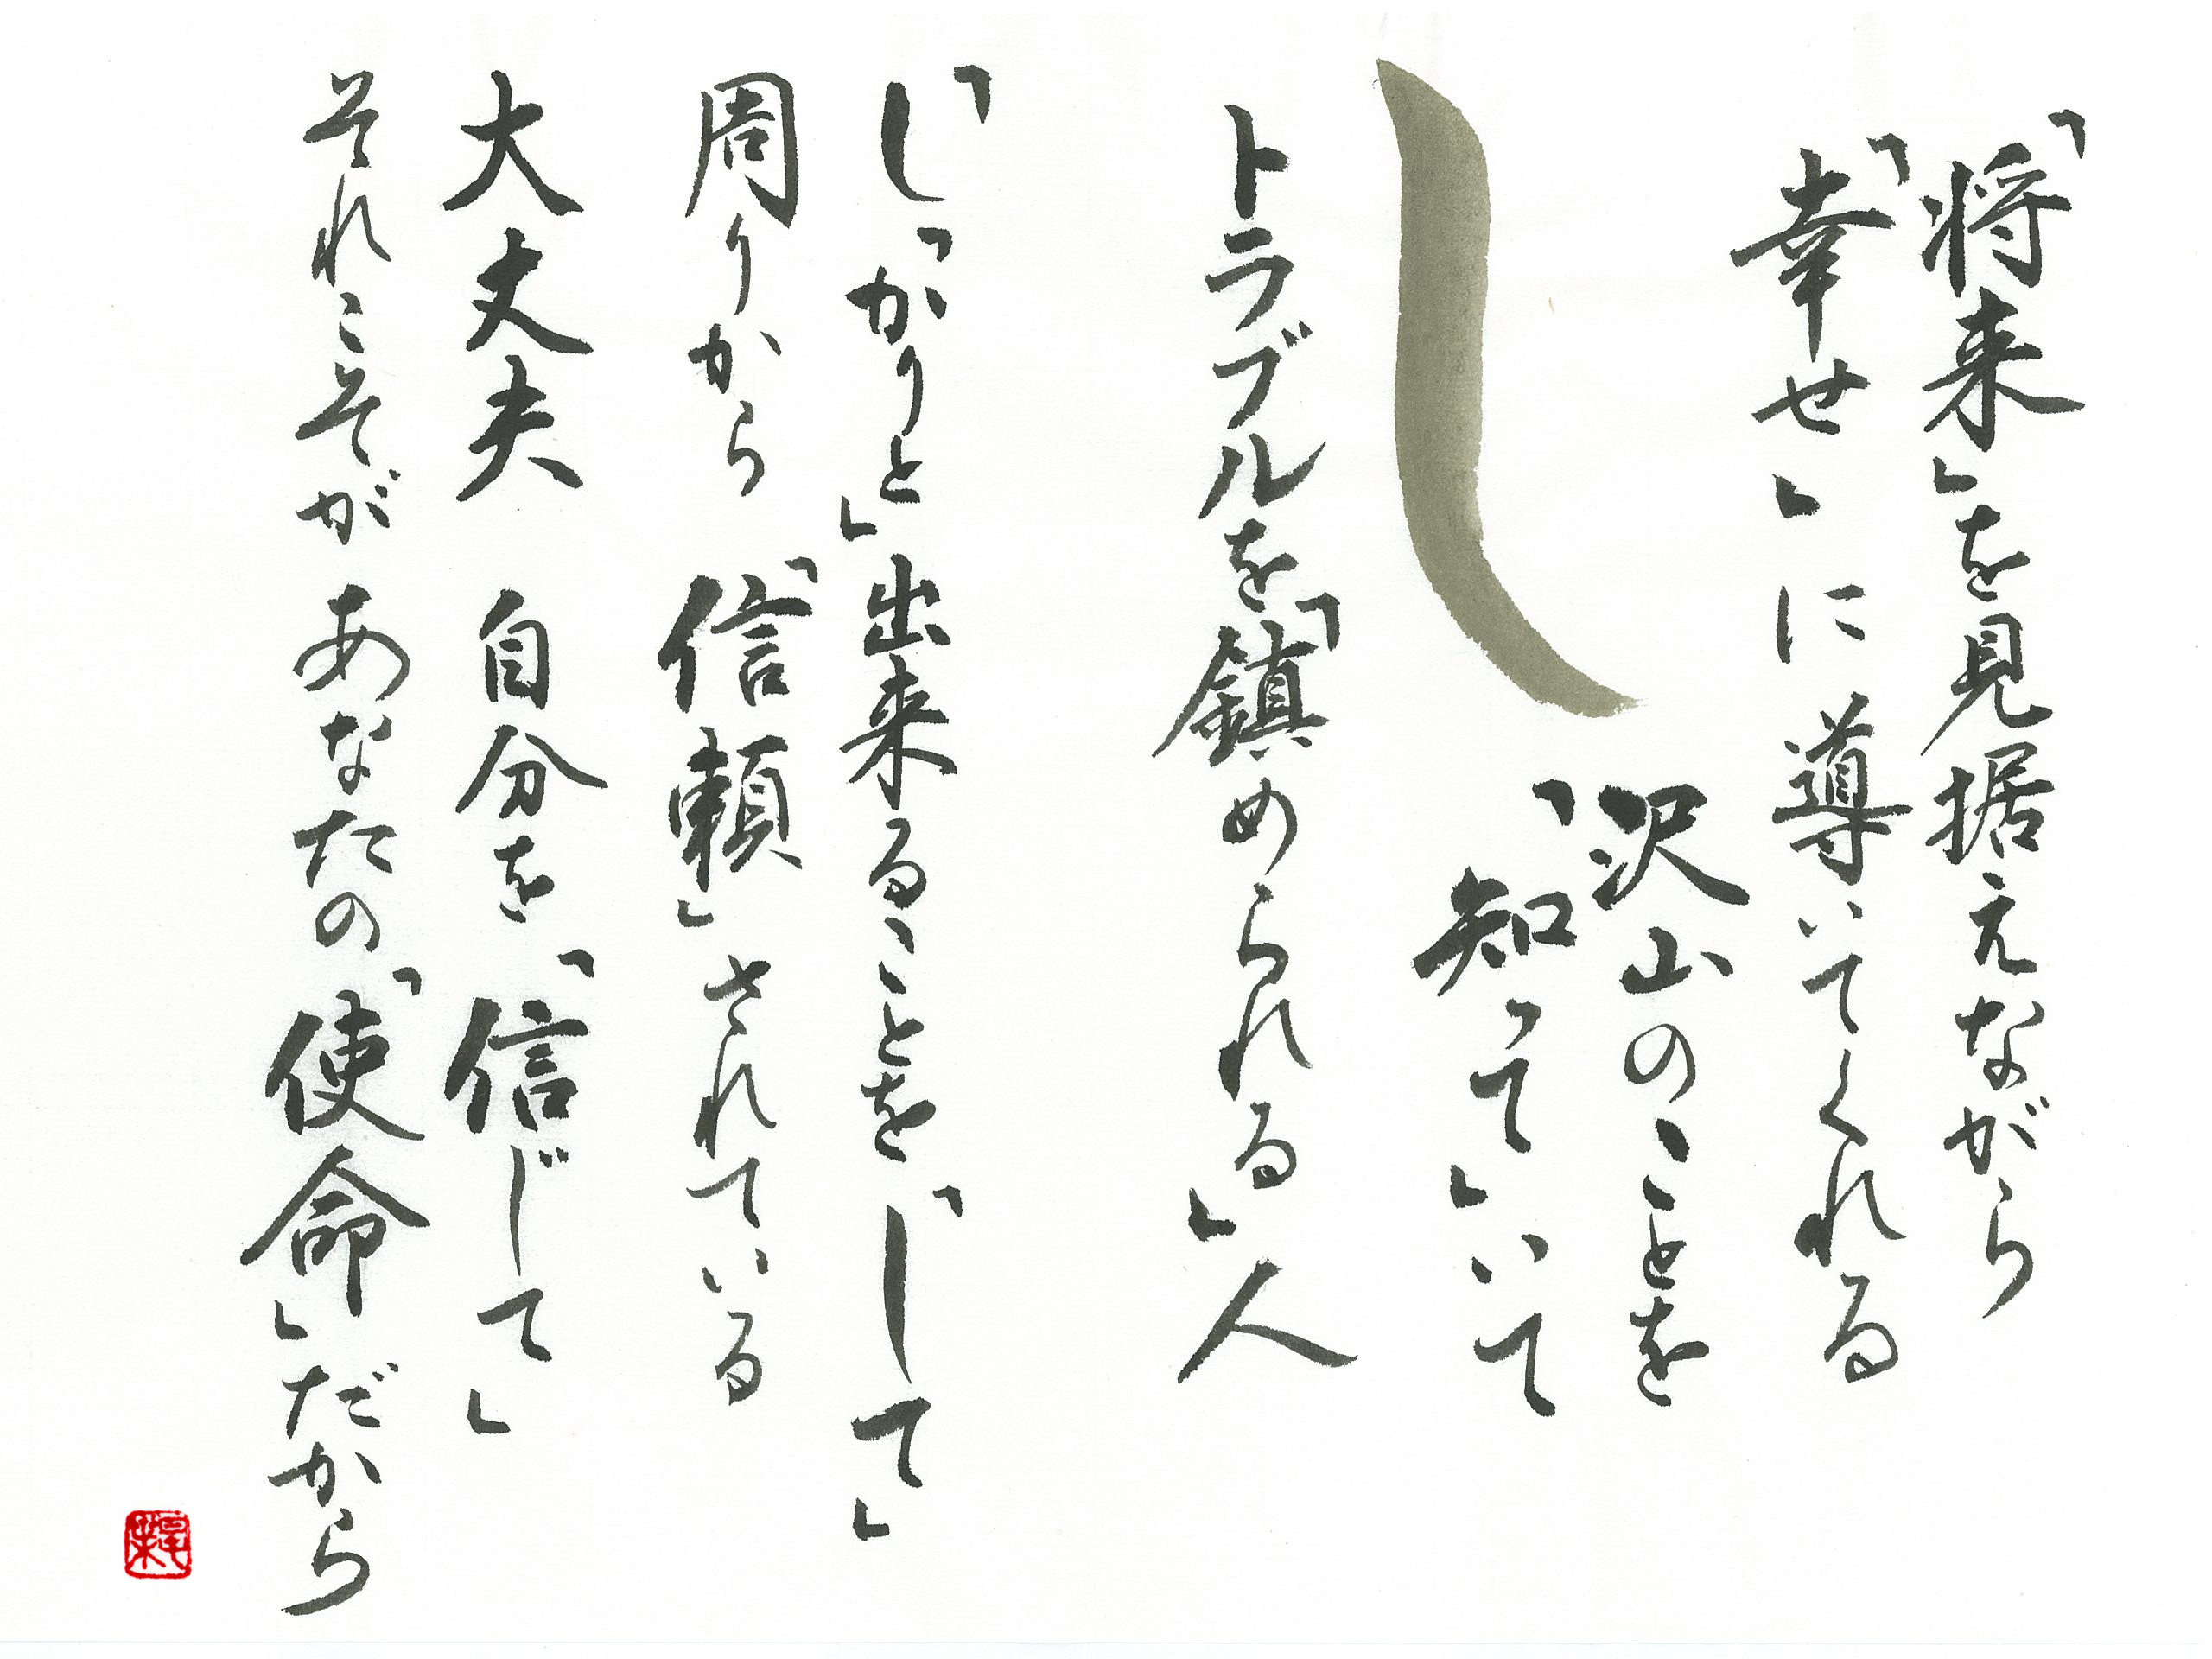 「将来」を見据えながら
「幸せ」に導いてくれる
し
沢山のことを
「知って」いて
トラブルを「鎮められる」人
「しっかりと」出来ることを「じて」
周りから「信頼」されている
大丈夫 自分を「信じて」
それこそが あなたの「使命」だから